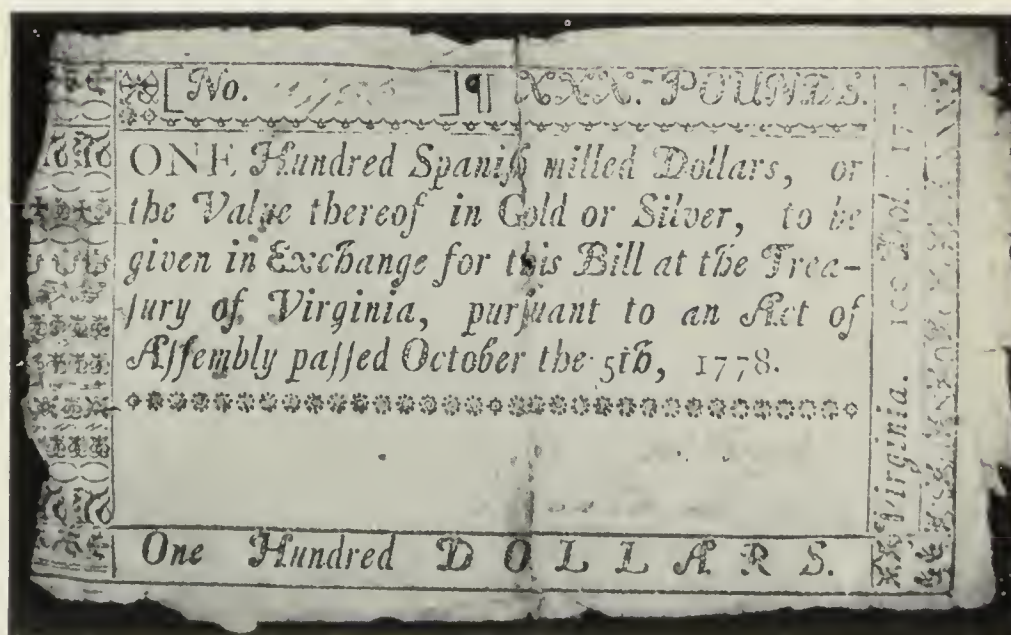 [No. ]¶ XXX. POUNDS.
ONE Hundred Spaniſh milled Dollars, or
the Value thereof in Gold or Silver, to be
given in Exchange for this Bill at the Trea-
ſury of Virginia, purſuant to an Act of
Aſſembly paſſed October the 5th, 1778.
One Hundred DOLLARS.
Virginia. 100 Dol.